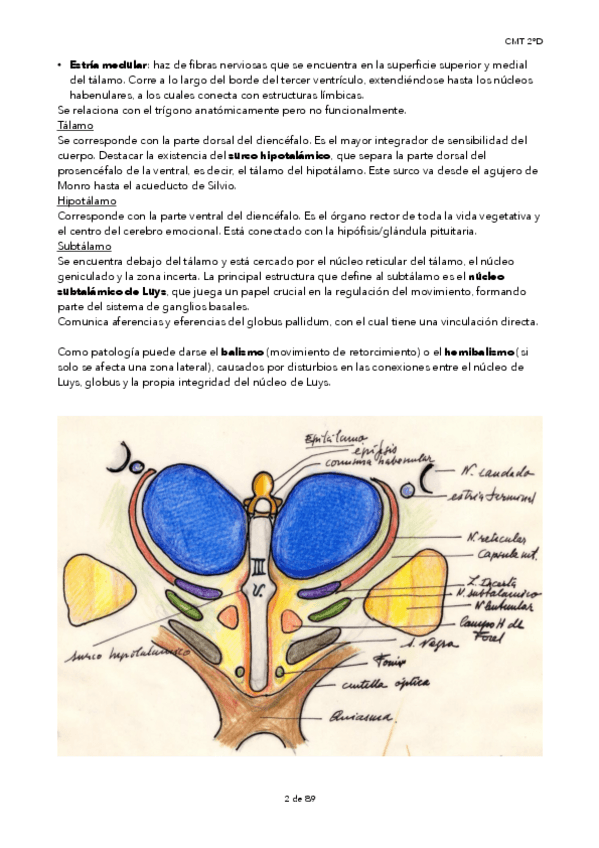 CMT 2ºD
• Estría medular: haz de fibras nerviosas que se encuentra en la superficie superior y medial
del tálamo. Corre a lo largo del borde del tercer ventrículo, extendiéndose hasta los núcleos
habenulares, a los cuales conecta con estructuras límbicas.
Se relaciona con el trígono anatómicamente pero no funcionalmente.
Tálamo
Se corresponde con la parte dorsal del diencéfalo. Es el mayor integrador de sensibilidad del
cuerpo. Destacar la existencia del surco hipotalámico, que separa la parte dorsal del
prosencéfalo de la ventral, es decir, el tálamo del hipotálamo. Este surco va desde el agujero de
Monro hasta el acueducto de Silvio.
Hipotálamo
Corresponde con la parte ventral del diencéfalo. Es el órgano rector de toda la vida vegetativa y
el centro del cerebro emocional. Está conectado con la hipófisis/glándula pituitaria.
Subtálamo
Se encuentra debajo del tálamo y está cercado por el núcleo reticular del tálamo, el núcleo
geniculado y la zona incerta. La principal estructura que define al subtálamo es el núcleo
subtalámico de Luys, que juega un papel crucial en la regulación del movimiento, formando
parte del sistema de ganglios basales.
Comunica aferencias y eferencias del globus pallidum, con el cual tiene una vinculación directa.
Como patología puede darse el balismo (movimiento de retorcimiento) o el hemibalismo ( si
solo se afecta una zona lateral), causados por disturbios en las conexiones entre el núcleo de
Luys, globus y la propia integridad del núcleo de Luys.
Epitálamo
epífisis
comisura habenular
N. caudado
estría terminal
N. reticular
Capsula int.
Z. Incerta
N. subtalamico
N. lenticular
Campo H de
Forel
S. Negra
surco hipotalamico
Fornix
cintilla óptica
Quiasma
III
V.
2 de 89